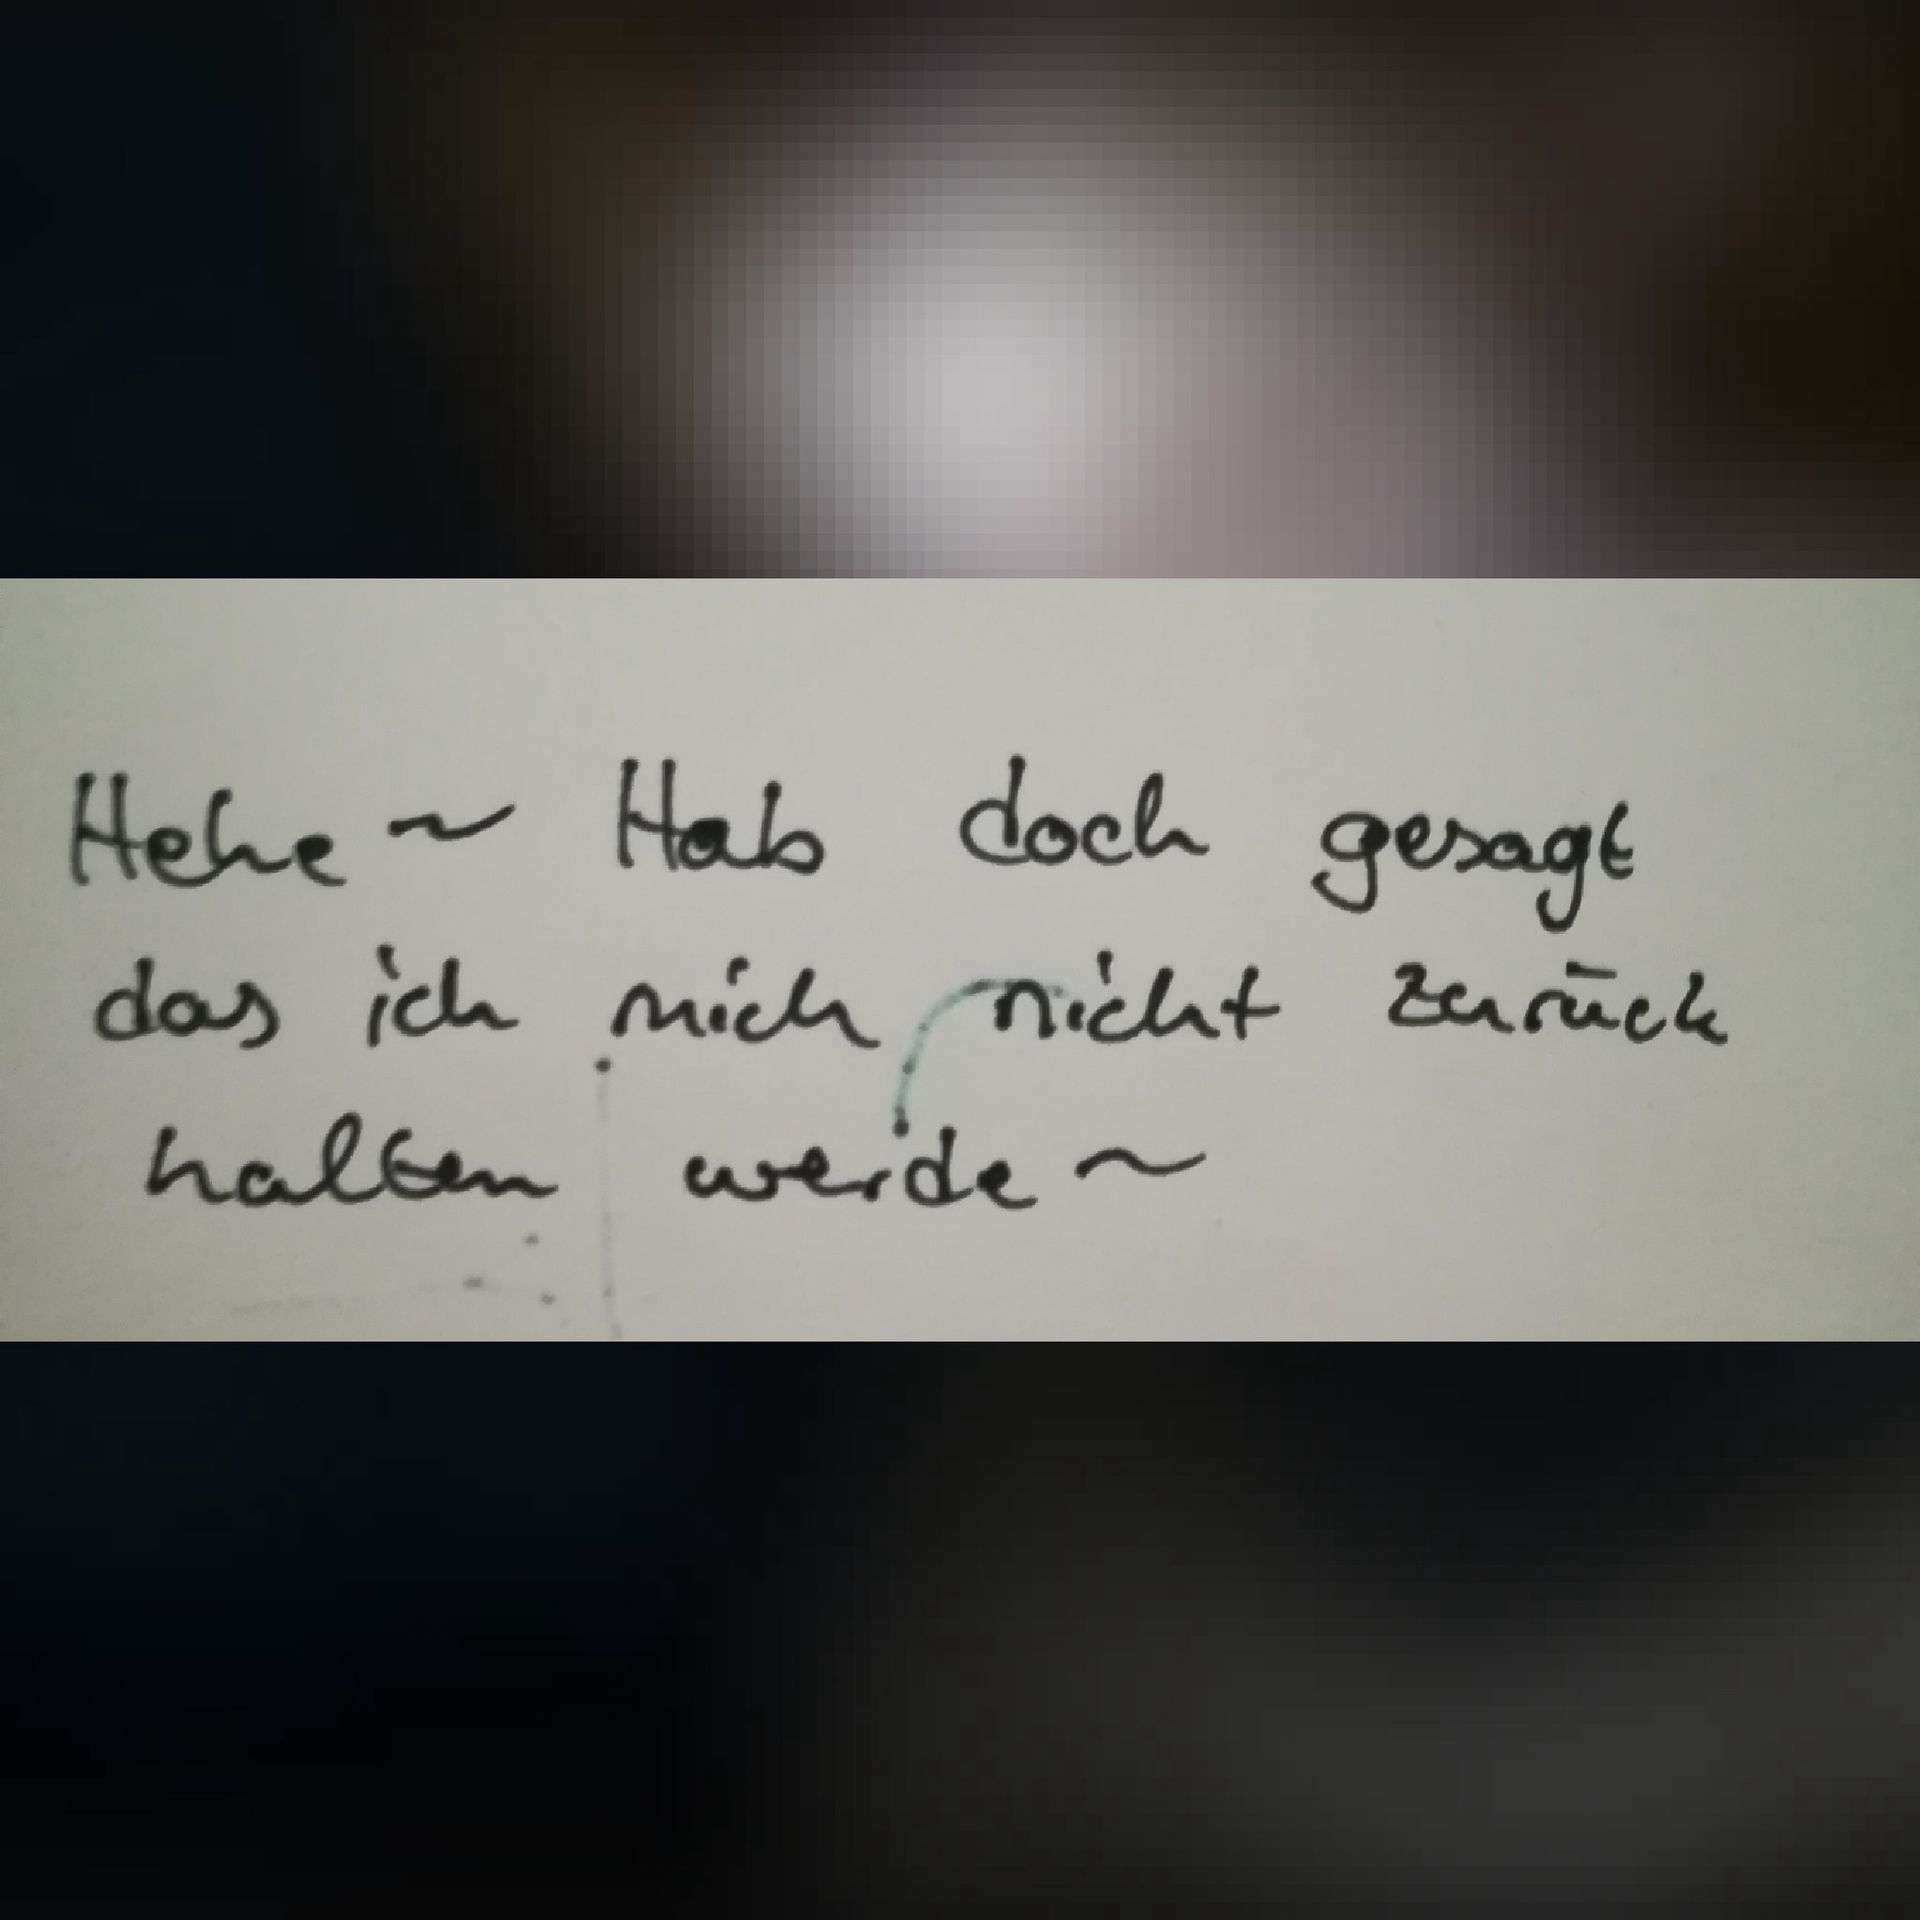 Hehe~ Hab doch gesagt
das ich mich nicht zurück
halten werde~